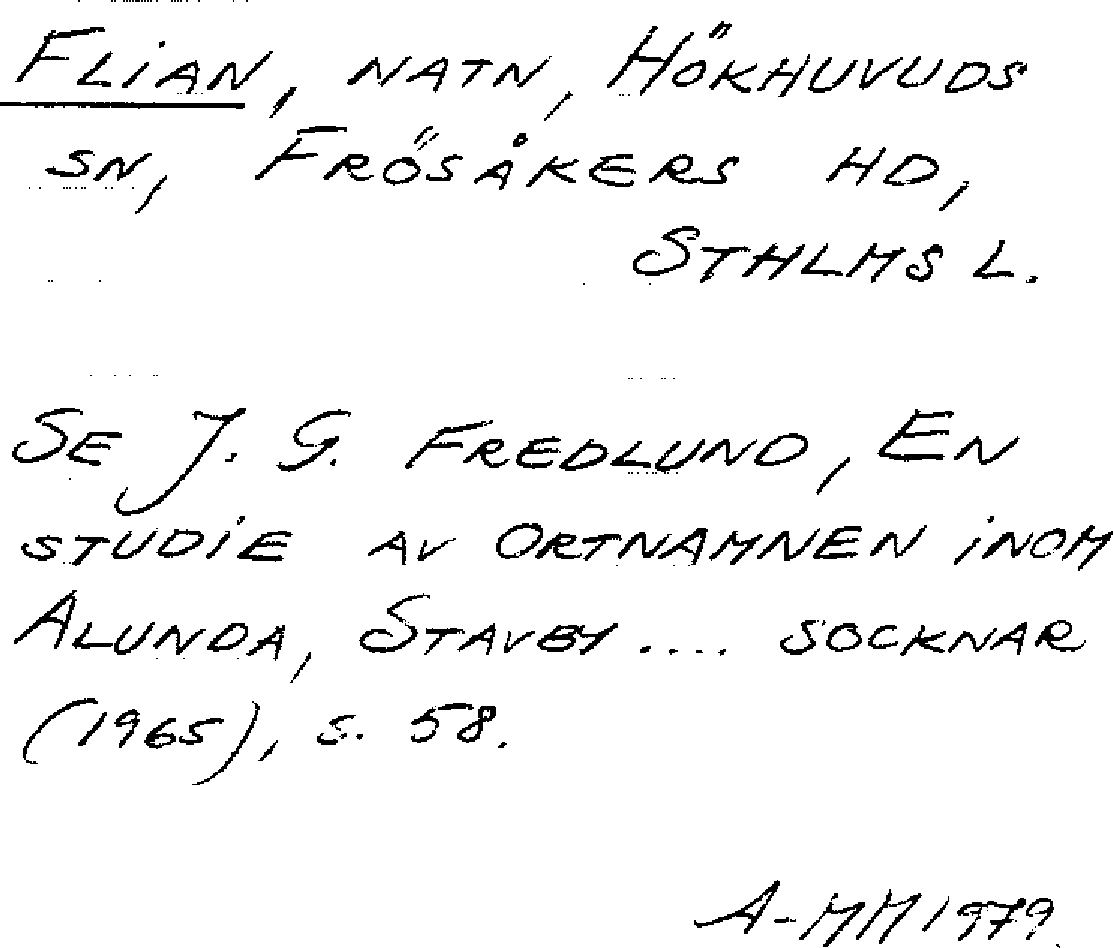 FLIAN, NATN, HÖKHUVUDS
SN, FRÖSÅKERS HD,
STHLMS L.
SE J. G. FREDLUND, EN
STUDIE AV ORTNAMNEN INOM
ALUNDA, STAVBY .... SOCKNAR
(1965), S. 58.
A-MM 1979.